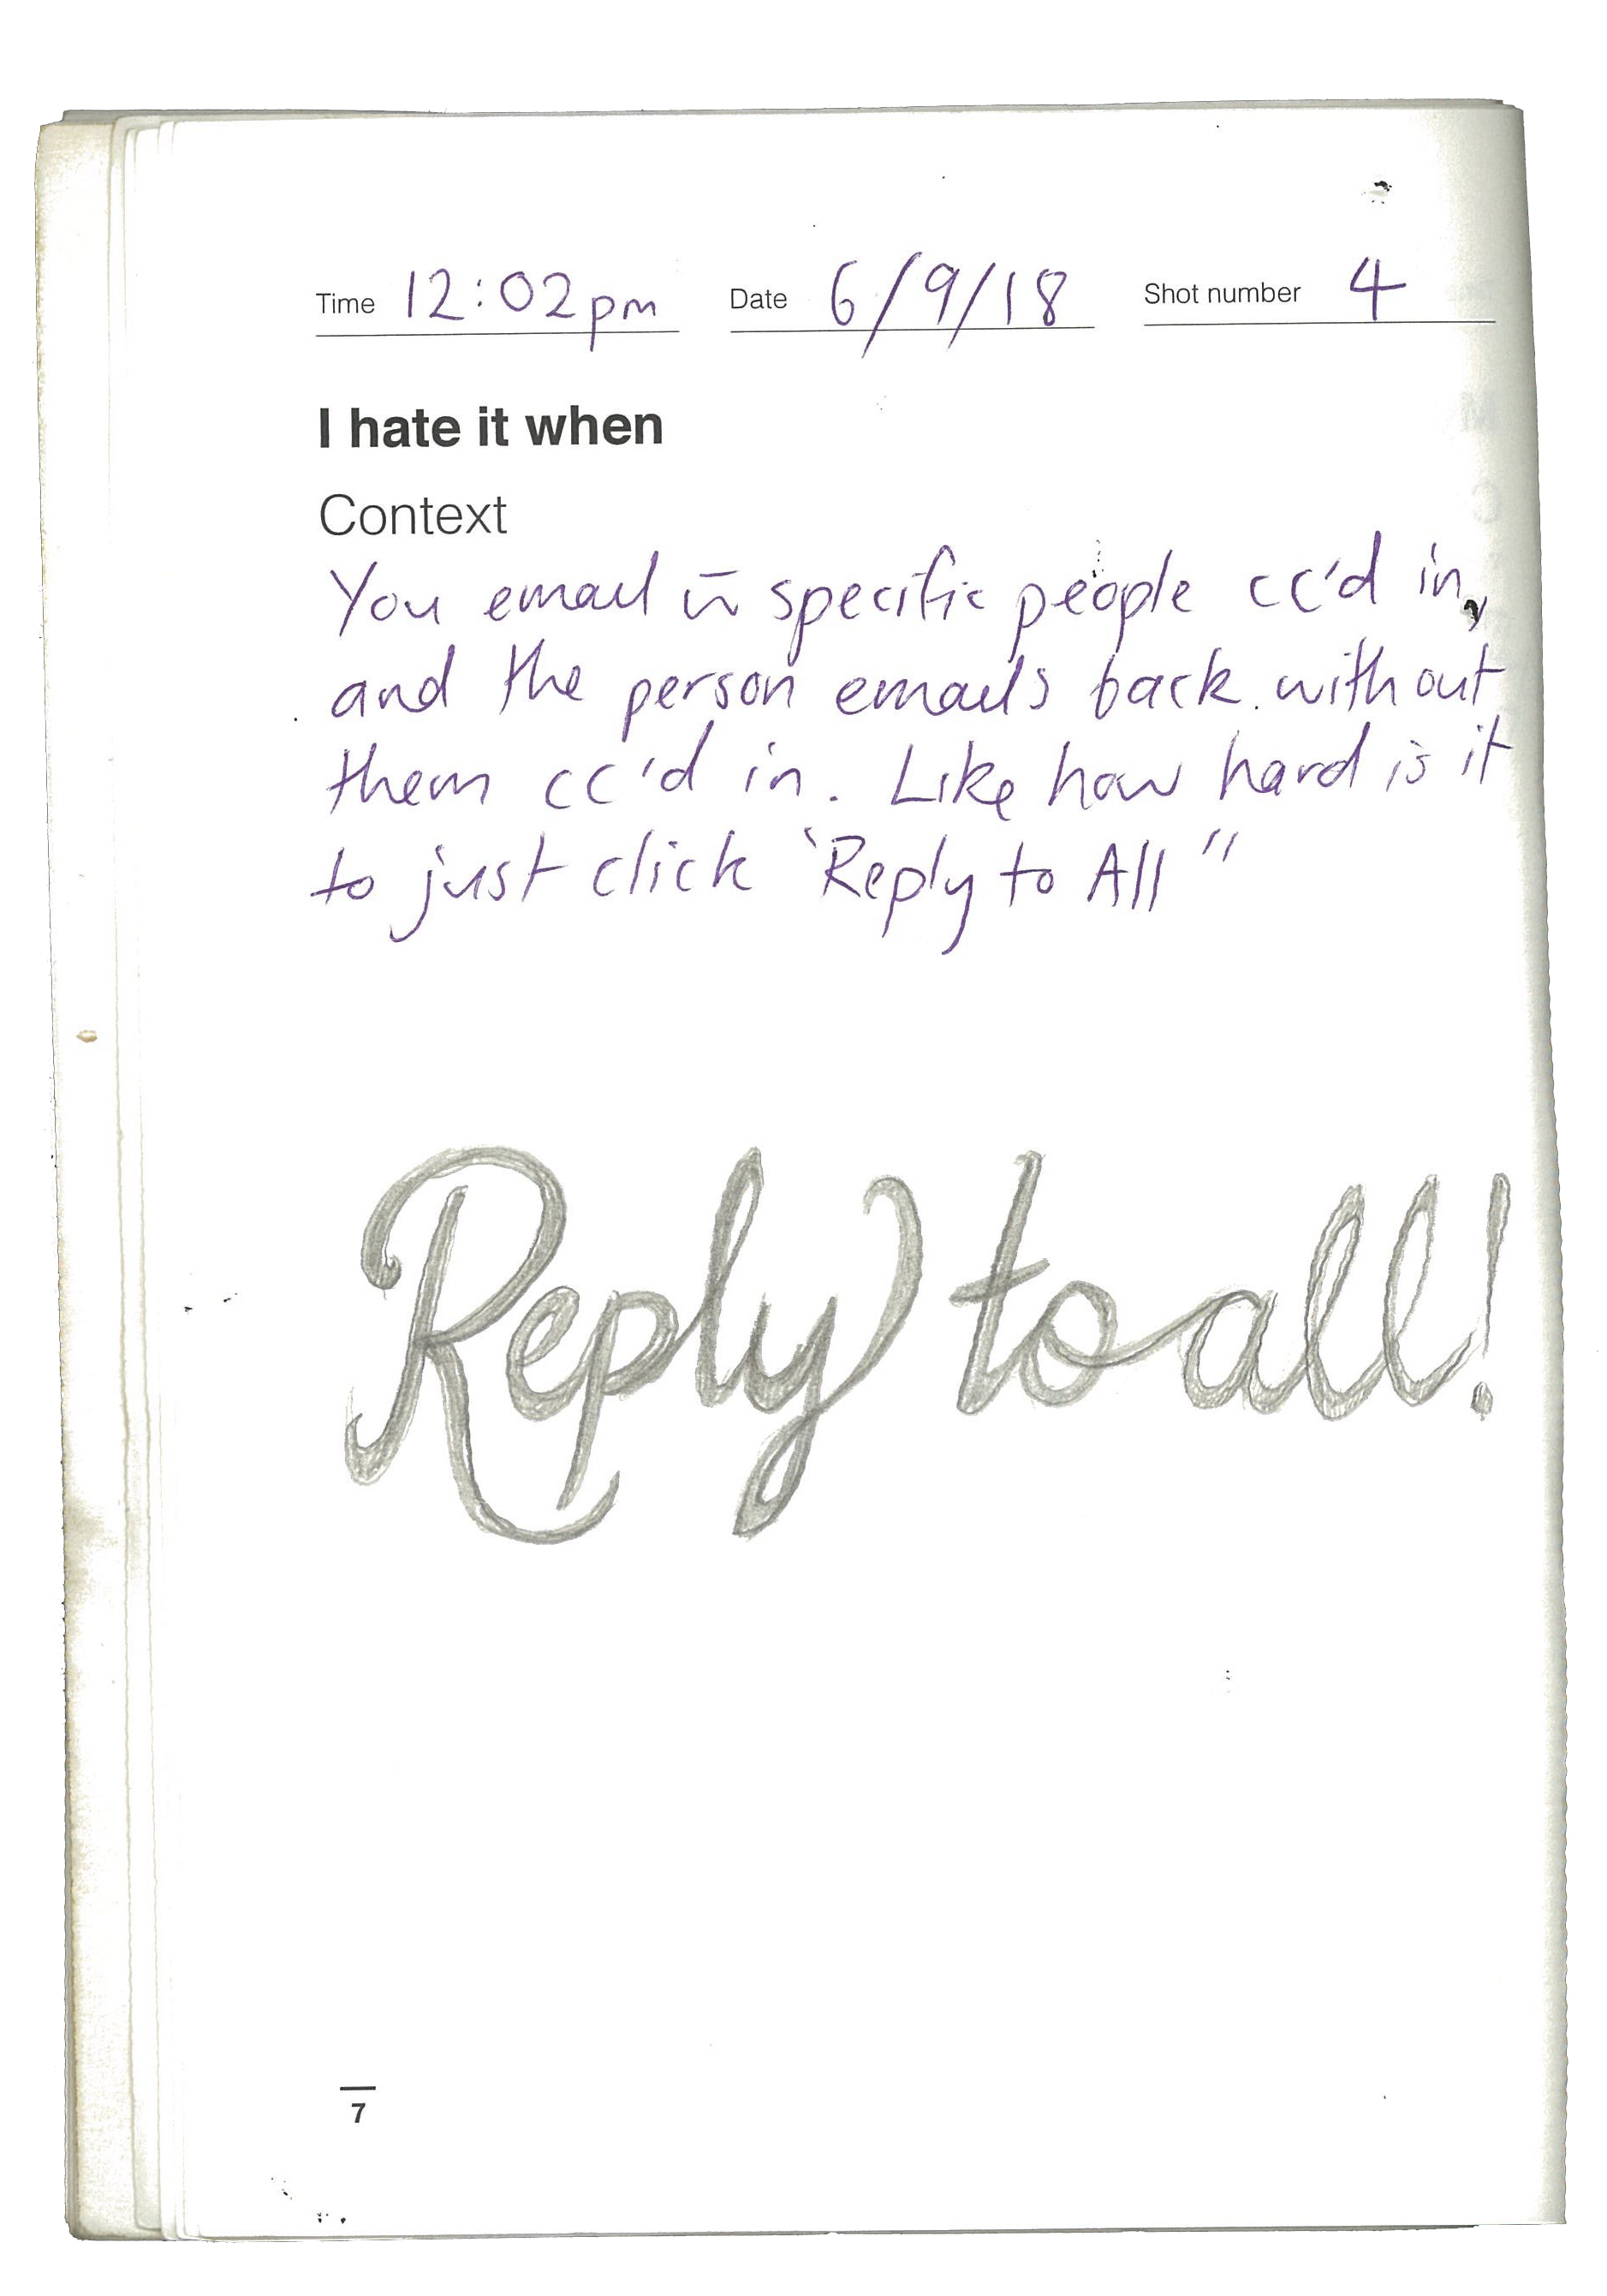 Time 12:02pm Date 6/9/18 Shot number 4
I hate it when
Context
You email w̄ specific people cc'd in,
and the person emails back without
them cc'd in. Like how hard is it
to just click 'Reply to All"
Reply to all!
7